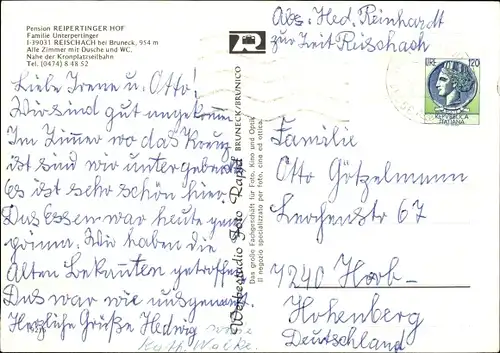 Pension REIPERTINGER HOF
Familie Unterpertinger
I-39031 REISCHACH bei Bruneck, 954 m
Alle Zimmer mit Dusche und WC.
Nahe der Kronplatzseilbahn
Tel. (0474) 8 48 52
Liebe Irene u. Otto!
Wir sind gut angekomm.
Im Zimmer wo das Kreuz
ist sind wir untergebracht
Es ist sehr schön hier.
Das Essen war heute ganz
prima. Wir haben die
Alten Bekannten getroffen
Das war wie ausgemacht.
Herzliche Grüße Hedwig
Kath.
Werbestudio Foto Rapid BRUNECK/BRUNICO
Das große Fachgeschäft für Foto, Kino und Optik
Il negozio specializzato per foto, cine ed ottica
Abs. Hed. Reinhardt
zur Zeit Reischach
LIRE 120
REPUBBLICA
ITALIANA
Familie
Otto Götzelmann
67
7240 Horb-
Hohenberg
Deutschland